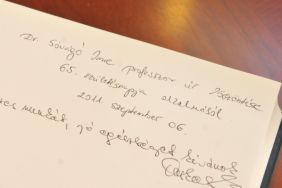 Dr. Sövegjó Imre professzor úr köszöntése
65. születésnapja alkalmából
2011. szeptember 06.
munkát, jó egészséget kívánok